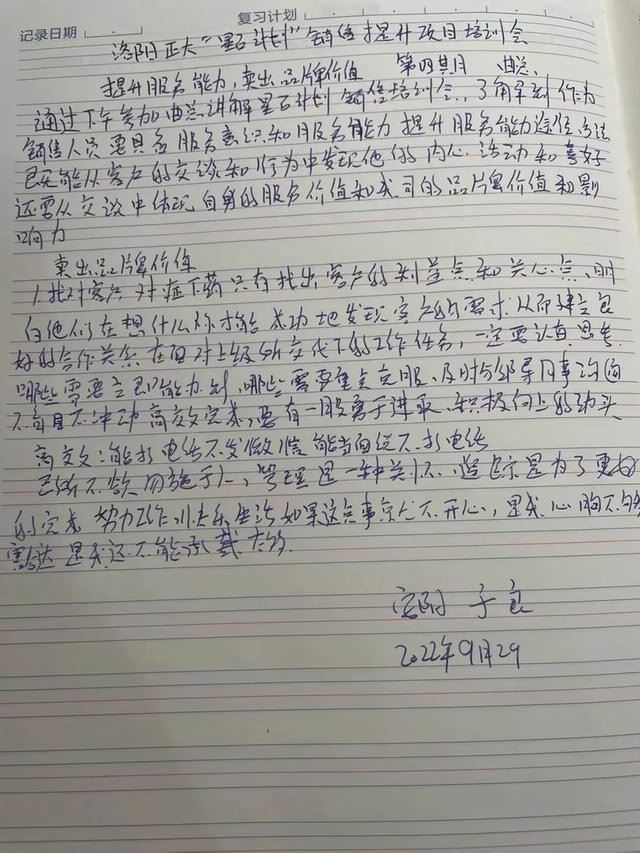 复习计划
记录日期
洛阳正大“星石计划”销售提升项目培训会
提升服务能力,卖出品牌价值 第四期 曲总
通过下午参加曲总讲解星石计划销售培训会,了解到作为
销售人员要具备服务意识和服务能力 提升服务能力途径方法
能从客户的交谈和行为中发现他的内心活动和喜好
还要从交谈中体现自身的服务价值和我司的品牌价值和影
响力
卖出品牌价值
1找对客户 对症下药 只有找出客户的利益点和关心点,明
白他们在想什么你才能成功地发现客户的需求 从而建立良
好的合作关系 在面对上级所交代下的工作任务,一定要认真思考
哪些需要 能力 ,哪些需要重点克服、及时与领导同事沟通
不盲目不冲动 高效完成,要有一股勇于进取、积极向上的劲头
高效:能打电话不发微信 能当面说不打电话
己所不欲勿施于人,管理是一种关怀、 是为了更好
的完成 努力工作 快乐生活 如果这点事 不开心,是我心胸不够
豁达 是我还不能承载太多.
宜阳 于
2022年9月29